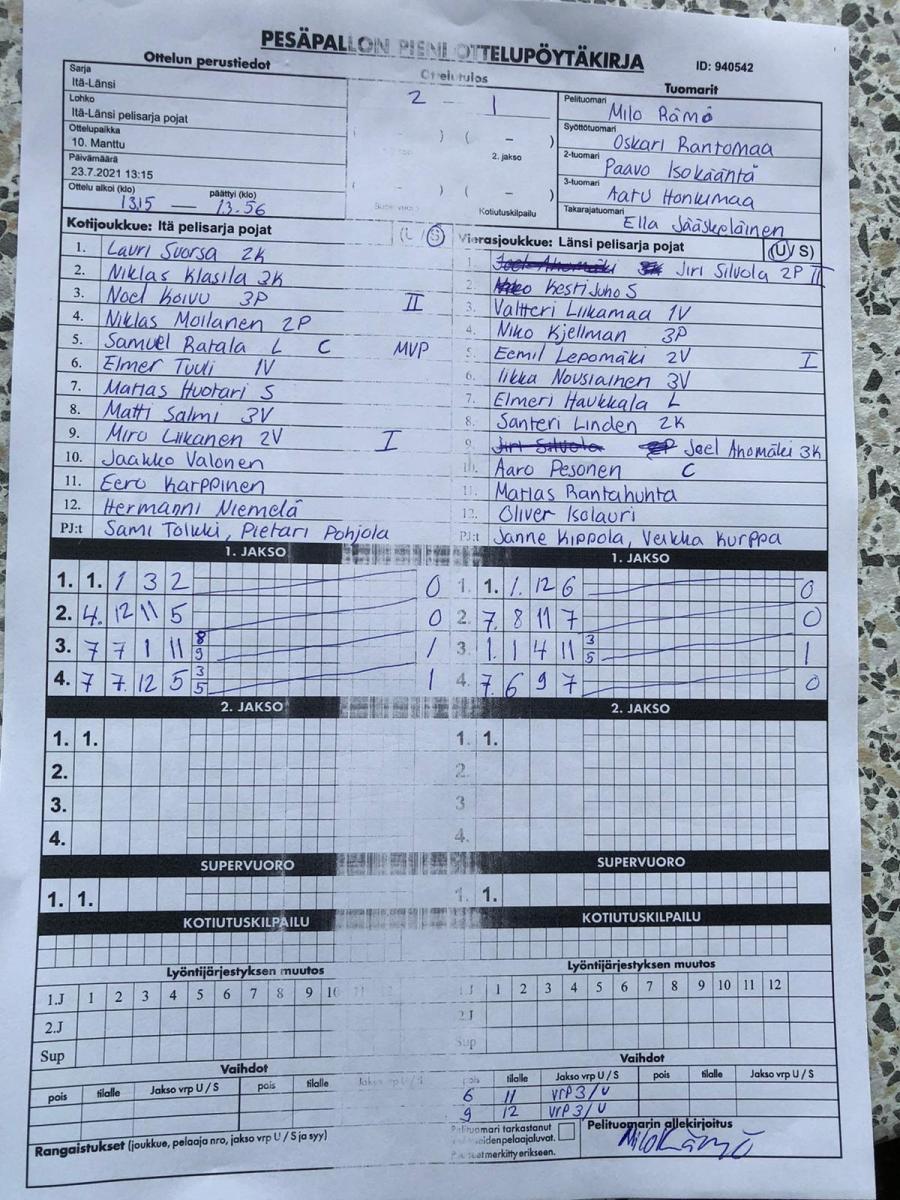 PESÄPALLON PIENI OTTELUPÖYTÄKIRJA
ID: 940542
Ottelun perustiedot
Sarja
Itä-Länsi
Lohko
Itä-Länsi pelisarja pojat
Ottelupaikka
10. Manttu
Päivämäärä
23.7.2021 13:15
Ottelu alkoi (klo) päättyi (klo)
1315 — 13.56
Ottelutulos
2 - 1
( - ) ( - )
2. jakso
( - ) ( - )
Kotiutuskilpailu
Tuomarit
Pelituomari Milo Rämö
Syöttötuomari Oskari Rantomaa
2-tuomari Paavo Isokääntä
3-tuomari Aatu Honkimaa
Takarajatuomari Ella Jääskeläinen
Kotijoukkue: Itä pelisarja pojat (L / S)
1. Lauri Suorsa 2K
2. Niklas Klasila 3K
3. Noel Koivu 3P II
4. Niklas Moilanen 2P
5. Samuel Ratala L C MVP
6. Elmer Tuuli 1V
7. Matias Huotari S
8. Matti Salmi 3V
9. Miro Liikanen 2V I
10. Jaakko Valonen
11. Eero Karppinen
12. Hermanni Niemelä
PJ:t Sami Tolkki, Pietari Pohjola
Vierasjoukkue: Länsi pelisarja pojat (U / S)
1. Joel Ahomäki 3K Jiri Silvola 2P II
2. Niko Kesti Juho S
3. Valtteri Liikamaa 1V
4. Niko Kjellman 3P
5. Eemil Lepomäki 2V I
6. Iikka Nousiainen 3V
7. Elmeri Haukkala L
8. Santeri Linden 2K
9. Jiri Silvola 2P Joel Ahomäki 3K
10. Aaro Pesonen C
11. Matias Rantahuhta
12. Oliver Isolauri
PJ:t Janne Kippola, Veikka Kurppa
1. JAKSO
1. 1. 1 3 2 0
2. 4. 12 11 5 0
3. 7 7 1 11 8 9 1
4. 7 7. 12 5 3 5 1
1. JAKSO
1. 1. 1. 12 6 0
2. 7. 8 11 7 0
3. 1. 1 4 11 3 5 1
4. 7. 6 9 7 0
2. JAKSO
1. 1.
2.
3.
4.
2. JAKSO
1. 1.
2.
3
4.
SUPERVUORO
1. 1.
SUPERVUORO
1. 1.
KOTIUTUSKILPAILU
KOTIUTUSKILPAILU
Lyöntijärjestyksen muutos
1.J 1 2 3 4 5 6 7 8 9 10 11 12
2.J
Sup
Lyöntijärjestyksen muutos
1.J 1 2 3 4 5 6 7 8 9 10 11 12
2.J
Sup
Vaihdot
pois tilalle Jakso vrp U / S pois tilalle Jakso vrp U / S
Vaihdot
pois tilalle Jakso vrp U / S pois tilalle Jakso vrp U / S
6 11 vrp 3/U
9 12 vrp 3/U
Rangaistukset (joukkue, pelaaja nro, jakso vrp U / S ja syy)
Pelituomari tarkastanut
Puutteet merkitty erikseen.
Pelituomarin allekirjoitus
Milo Rämö